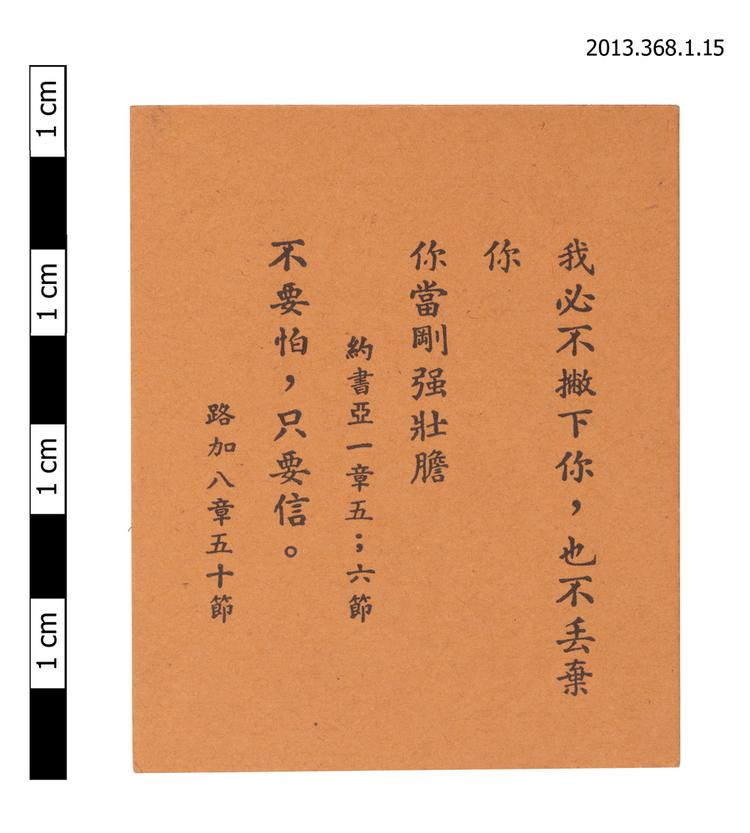 2013.368.1.15
1 cm
1 cm
1 cm
1 cm
我必不撇下你，也不丢棄
你
你當剛强壯膽
約書亞一章五；六節
不要怕，只要信。
路加八章五十節